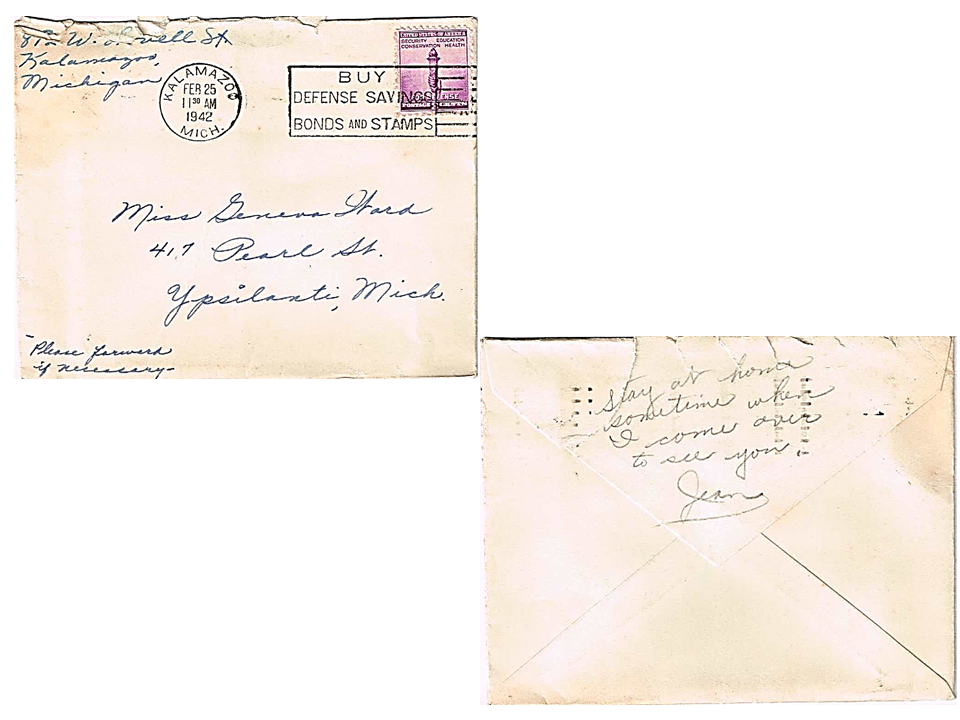 812 W. Lovell St.
Kalamazoo,
Michigan
KALAMAZOO
FEB 25
11 30 AM
1942
MICH.
BUY
DEFENSE SAVINGS
BONDS AND STAMPS
UNITED STATES OF AMERICA
SECURITY EDUCATION
CONSERVATION HEALTH
Miss Geneva Ward
417 Pearl St.
Ypsilanti, Mich.
-Please forward
if necessary-
Stay at home
sometime when
I come over
to see you.
Jean